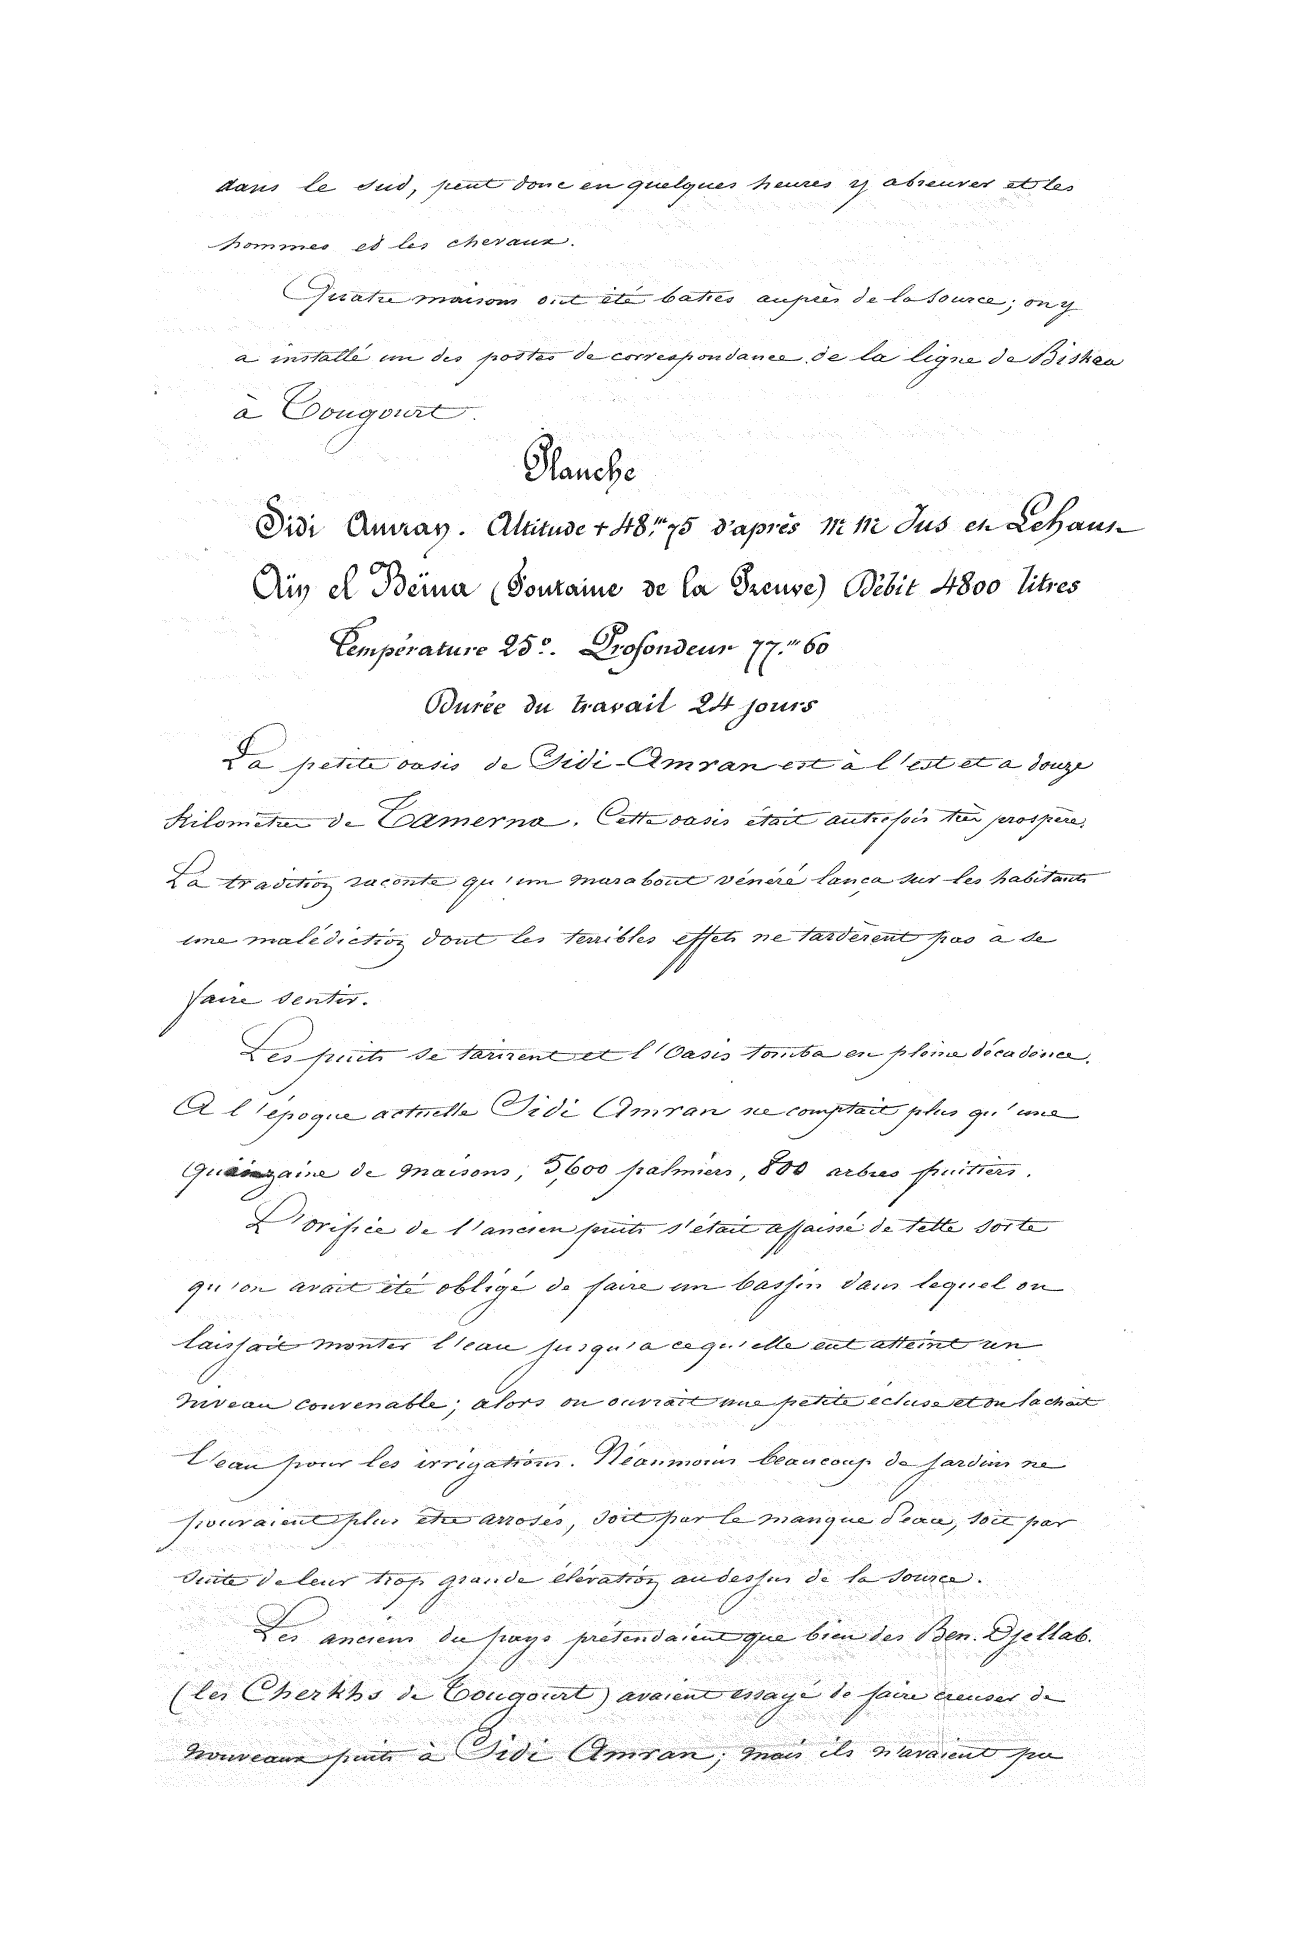 dans le sud, peut donc en quelques heures y abreuver et les
hommes et les chevaux.
Quatre maisons ont été baties auprès de la source; on y
a installé un des postes de correspondance de la ligne de Biskra
à Tougourt.
Planche
Sidi Amran. Altitude + 48,m75 d'après MM Jus et Lehaut
Aïn el Beïna (Fontaine de la Preuve) Débit 4800 litres
Température 25°. Profondeur 77.m60
Durée du travail 24 jours
La petite oasis de Sidi-Amran est à l'est et a douze
Kilomètres de Tamerna. Cette oasis était autrefois très prospère.
La tradition raconte qu'un marabout vénéré lança sur les habitants
une malédiction dont les terribles effets ne tardèrent pas à se
faire sentir.
Les puits se tarirent et l'Oasis tomba en pleine décadence.
A l'époque actuelle Sidi Amran ne comptait plus qu'une
quinzaine de maisons, 5,600 palmiers, 800 arbres fruitiers.
L'orifice de l'ancien puits s'était affaissé de telle sorte
qu'on avait été obligé de faire un bassin dans lequel on
laissait monter l'eau jusqu'a ce qu'elle eut atteint un
niveau convenable; alors on ouvrait une petite écluse et on lachait
l'eau pour les irrigations. Néanmoins beaucoup de jardins ne
pouvaient plus être arrosés, soit par le manque d'eau, soit par
suite de leur trop grande élévation au dessus de la source.
Les anciens du pays prétendaient que bien des Ben-Djellab.
(les Cheikhs de Tougourt) avaient essayé de faire creuser de
nouveaux puits à Sidi Amran; mais ils n'avaient pu